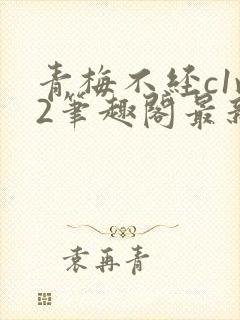 青梅不経c1v
2筆趣閣最新
袁再青